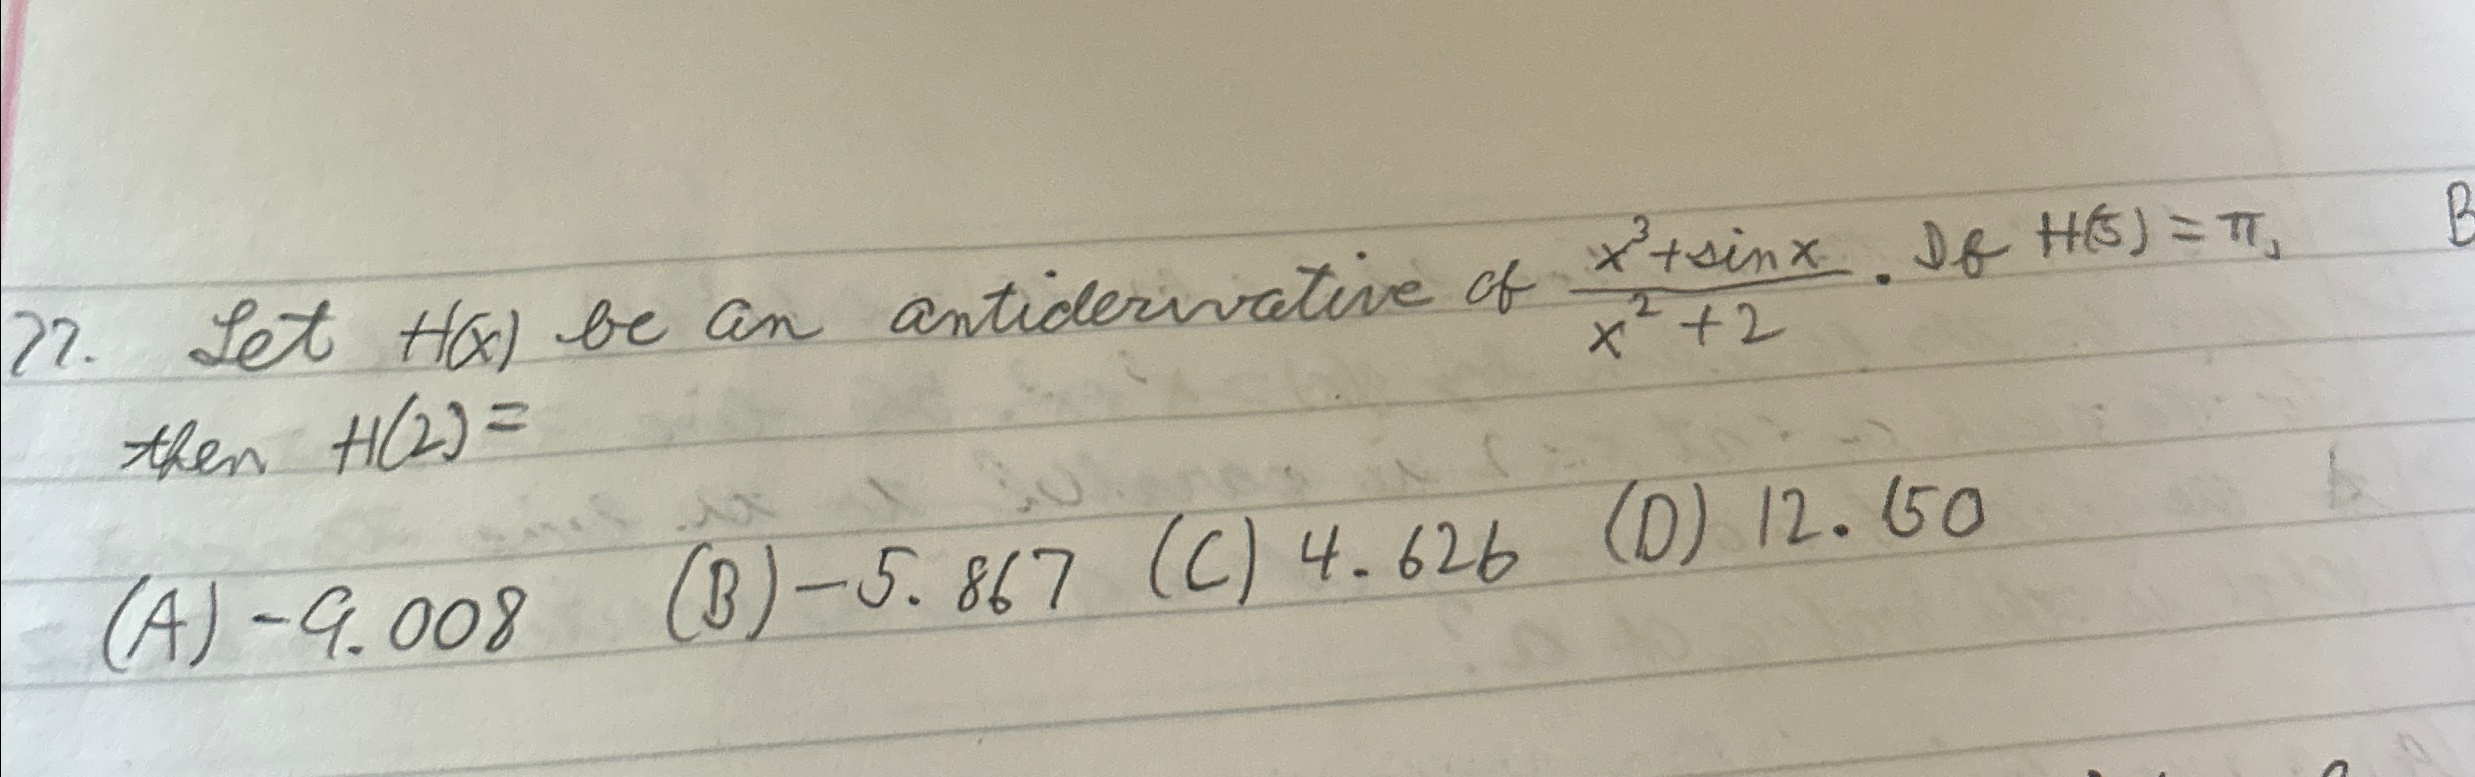 77. Let H(x) be an antiderivative of (x³+sinx)/(x²+2). If H(5)=π, B
then H(2)=
(A) -9.008 (B) -5.867 (C) 4.626 (D) 12.150